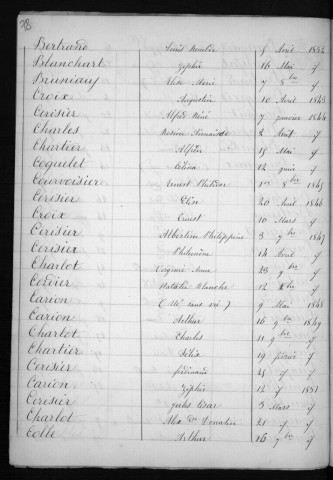 78
Bertrand Louis 8 Avril 1882
Blanchart Zéphir 16 Mai
Bruniaux Marie 7 8bre
Croix Augustin 10 Avril 1843
Cerisier Alfred René 7 janvier 1844
Charles 2 Août
Chartier 15 Mai
Coquelet Célina 12 juin
Courvoisier Ernest 1er 8bre 1845
Cerisier Elise 20 Août 1846
Croix Ernest 10 Mars
Cerisier Albertine Philippine 3 7bre 1847
Cerisier Philomène 14 Avril
Charlot Virginie Anne 28 9bre
Cordier Natalie Blanche 12 Xbre
Carion (Mt sans vie) 9 Mai 1848
Carion Arthur 16 9bre 1849
Charlot Charles 11 9bre
Chartier Félix 19 février
Cerisier ferdinand 28
Carion Zéphir 12 1851
Cerisier Jules César 3 Mars
Charlot Alex Donatien 21
Colle Arthur 16 7bre